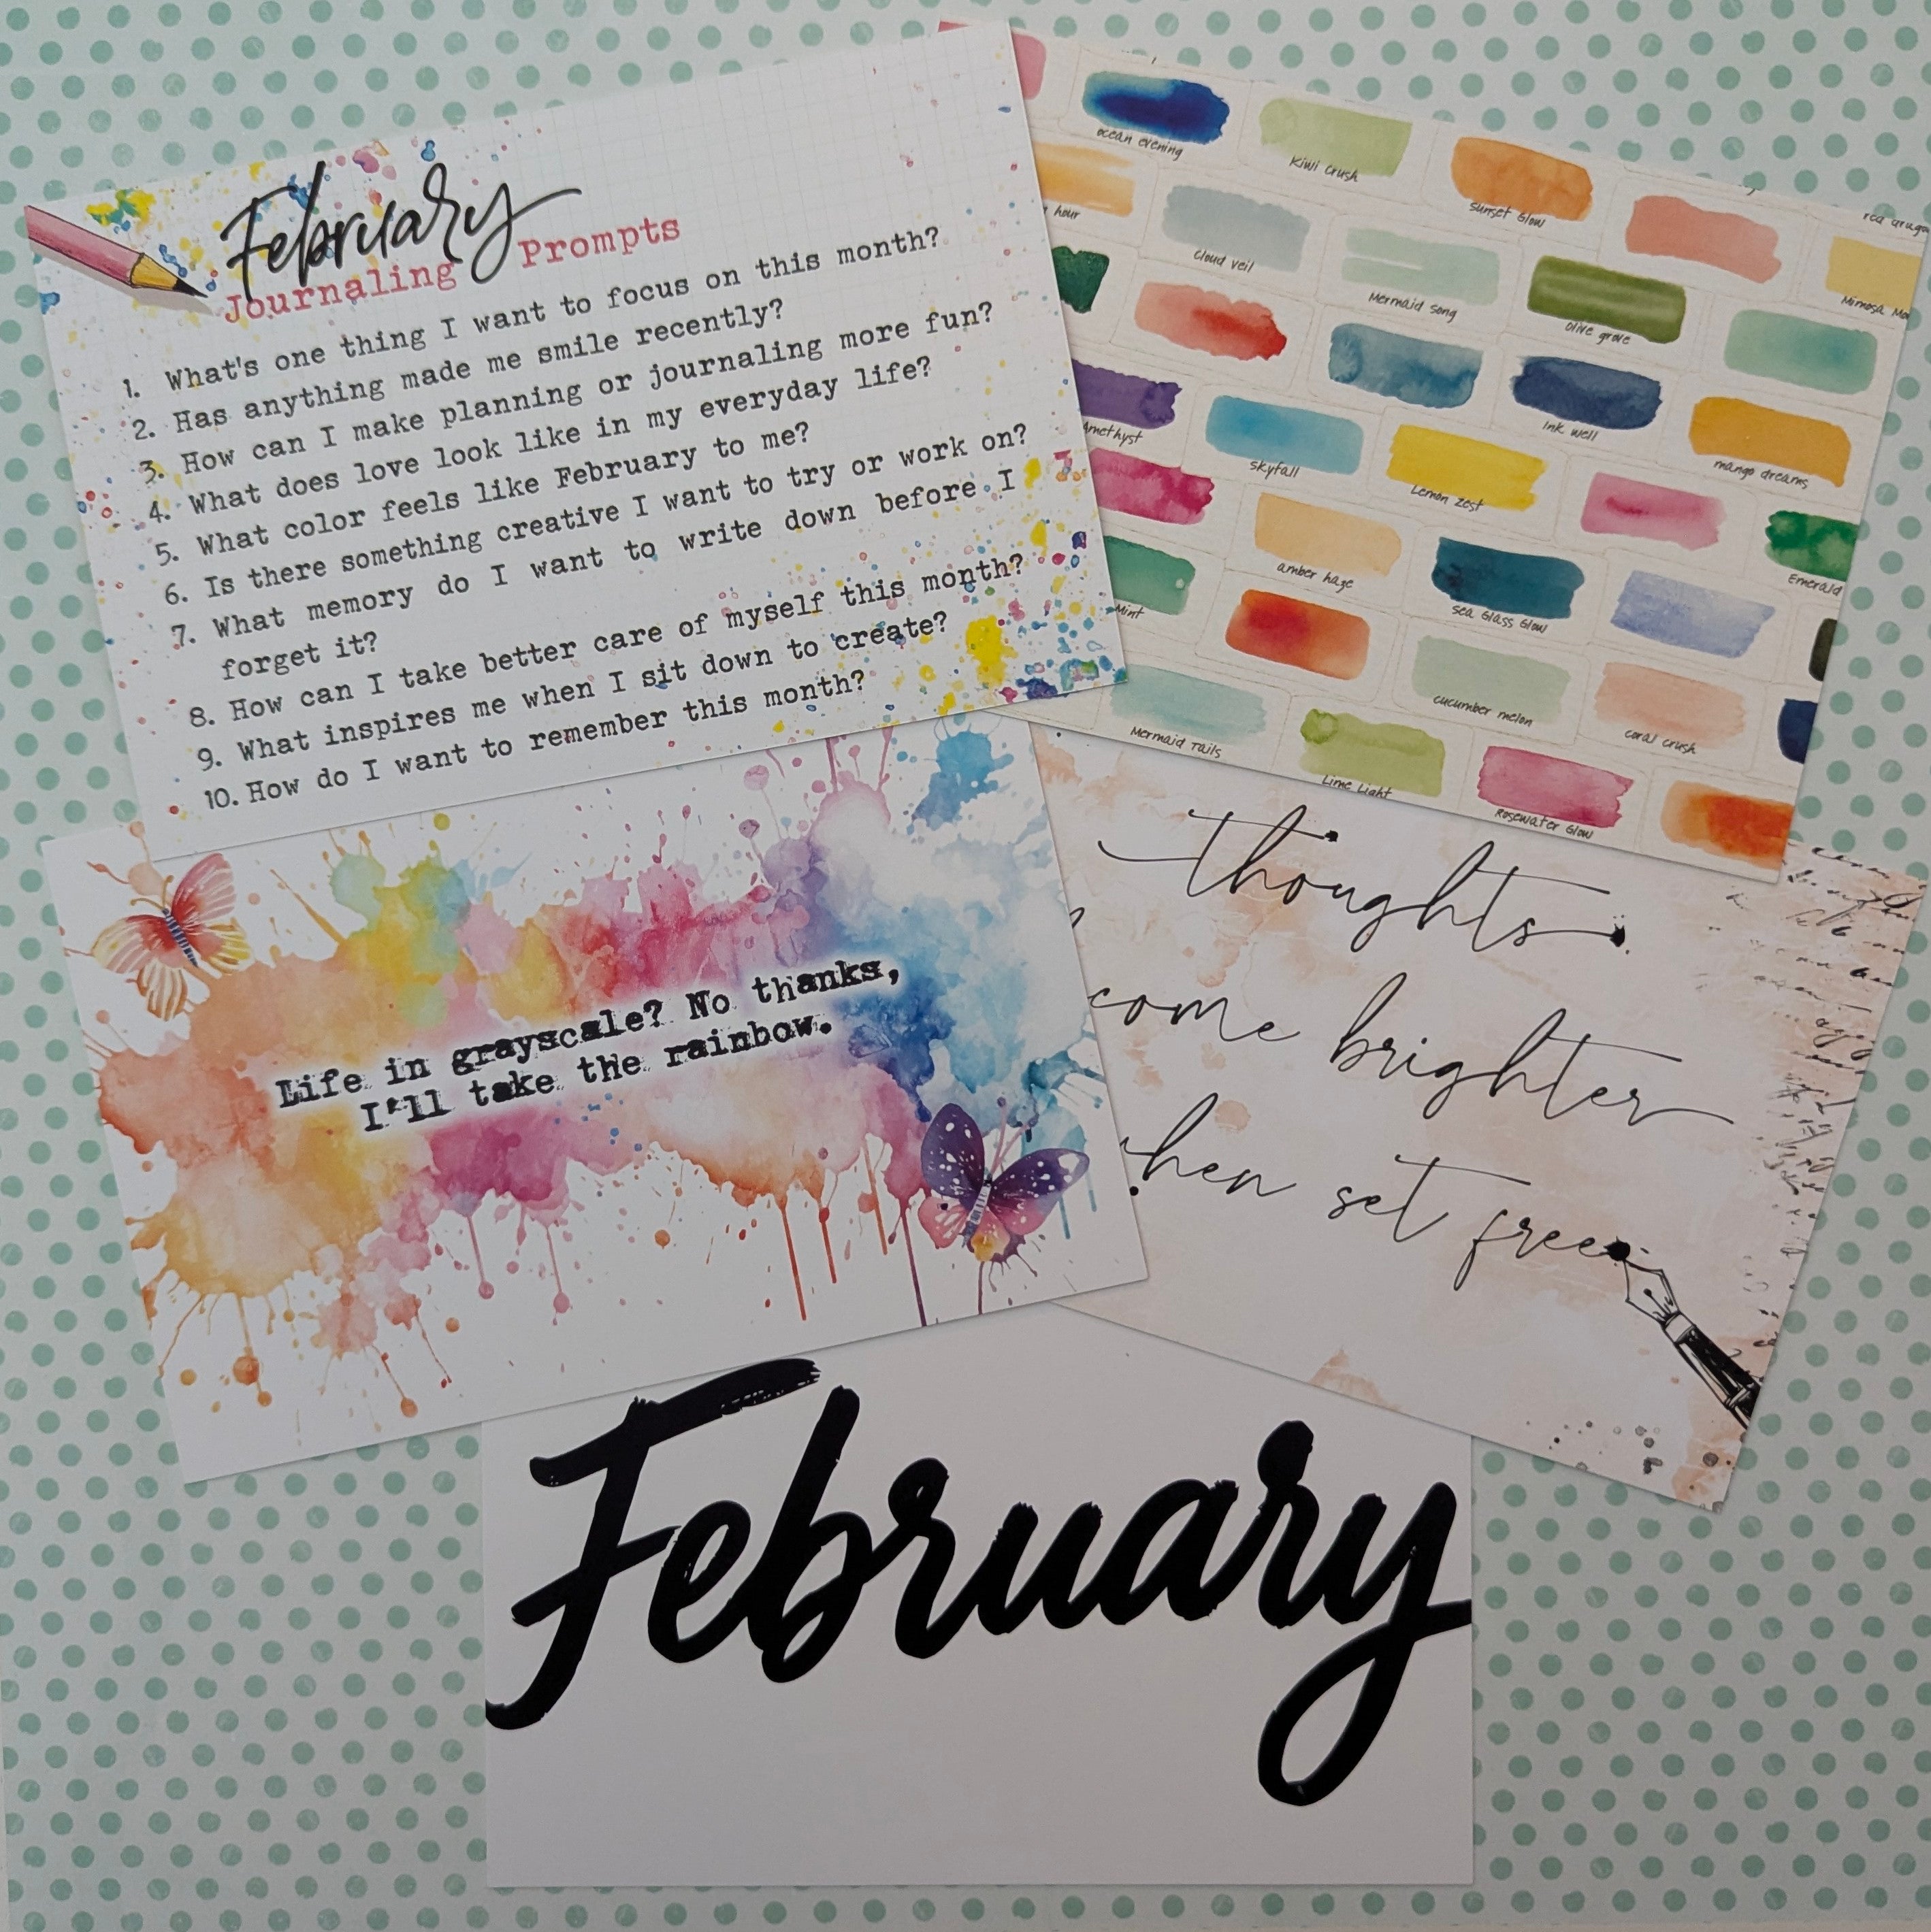 February
Journaling Prompts
1. What's one thing I want to focus on this month?
2. Has anything made me smile recently?
3. How can I make planning or journaling more fun?
4. What does love look like in my everyday life?
5. What color feels like February to me?
6. Is there something creative I want to try or work on?
7. What memory do I want to write down before I
forget it?
8. How can I take better care of myself this month?
9. What inspires me when I sit down to create?
10. How do I want to remember this month?
ocean evening
Kiwi Crush
Sunset Glow
hour
Cloud Veil
Mermaid Song
Olive grove
Mimosa
Amethyst
skyfall
Ink well
Lemon Zest
mango dreams
Mint
amber haze
Sea Glass Glow
Emerald
Mermaid Tails
cucumber melon
coral crush
Lime Light
Rosewater Glow
Life in grayscale? No thanks,
I'll take the rainbow.
thoughts
come brighter
hen set free
February